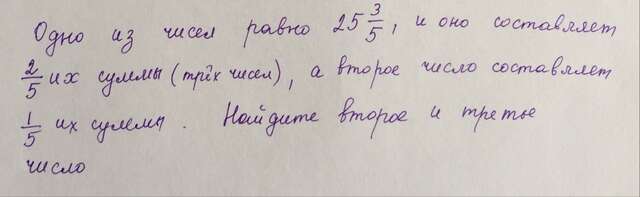 Одно из чисел равно 25 3/5, и оно составляет
2/5 их суммы (трёх чисел), а второе число составляет
1/5 их суммы. Найдите второе и третье
число